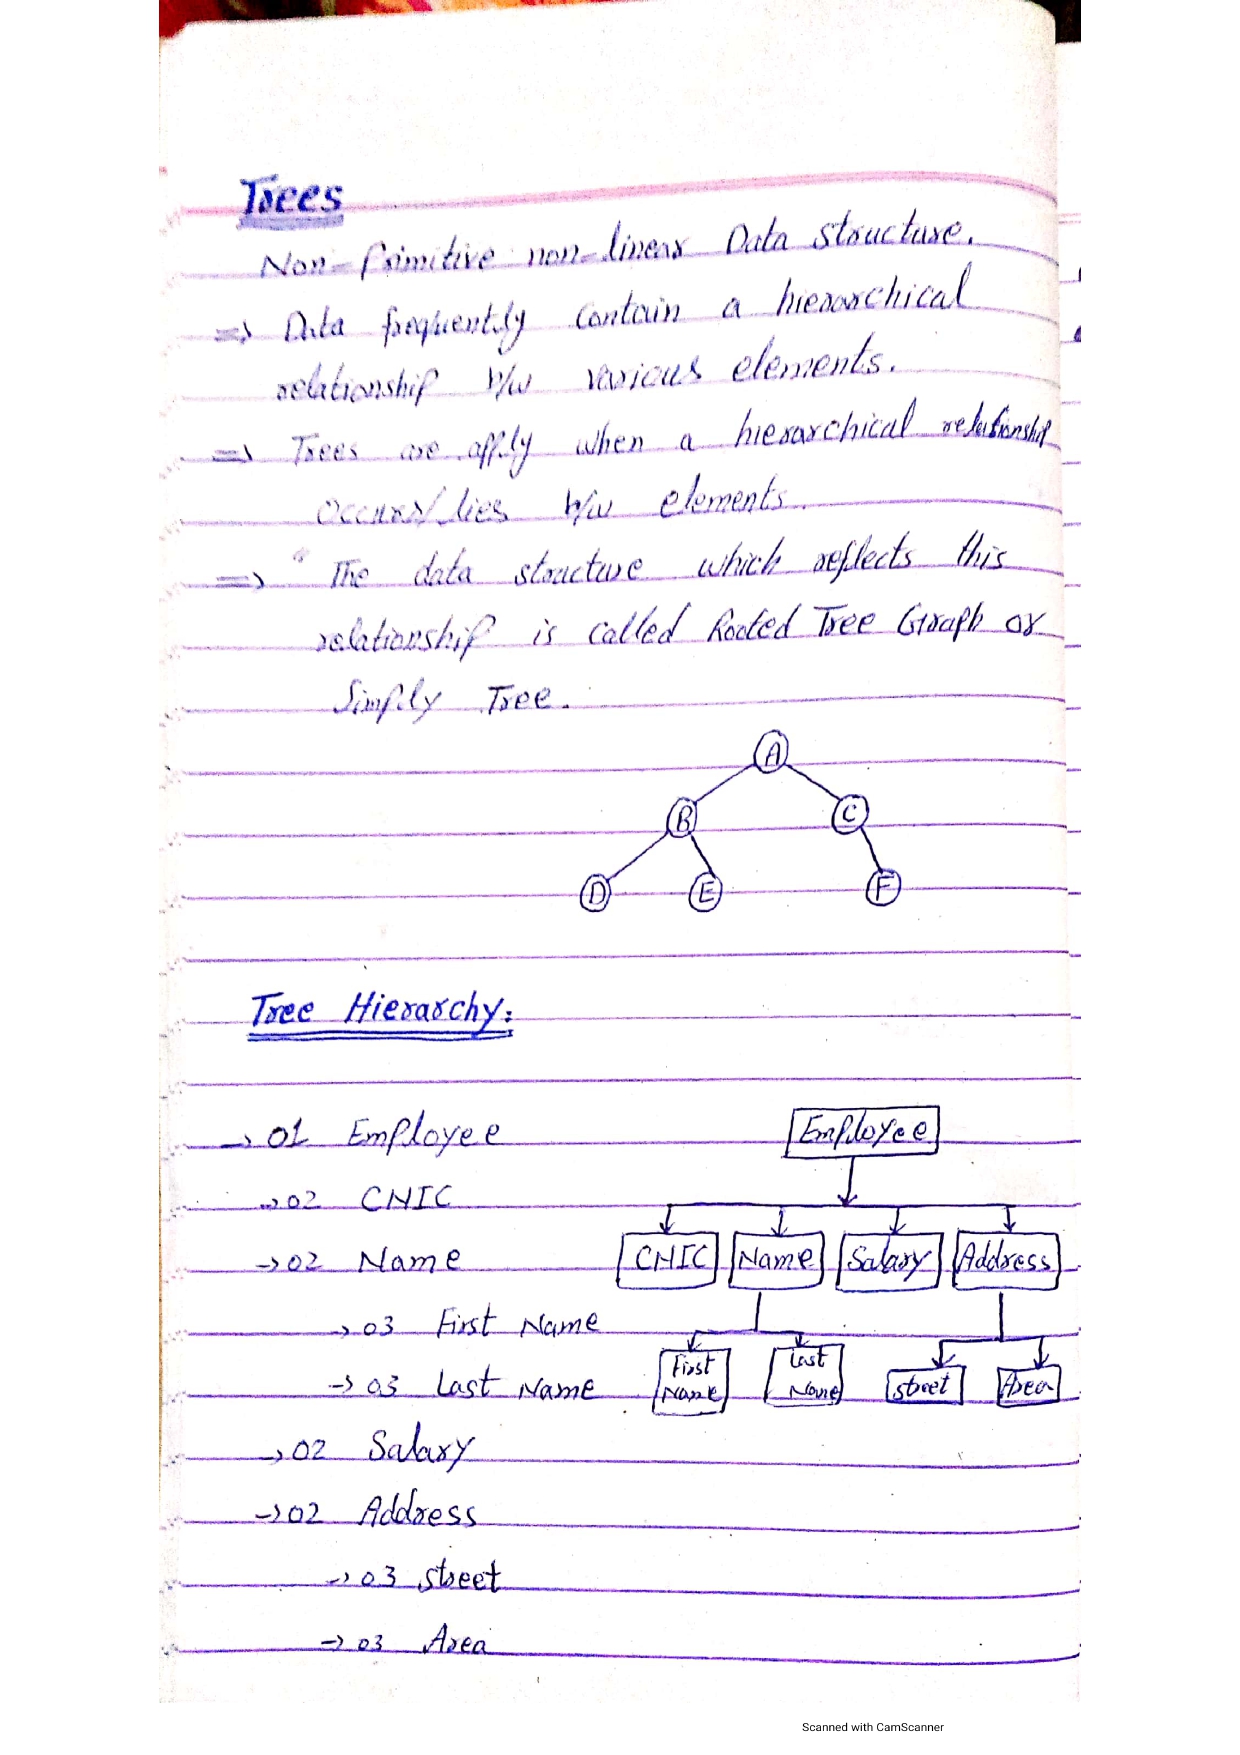 Trees
Non-Primitive non-linear Data Structure.
=> Data frequently contain a hierarchical
relationship b/w various elements.
=> Trees are apply when a hierarchical relationship
occurs/lies b/w elements.
=> "The data structure which reflects this
relationship is called Rooted Tree Graph or
Simply Tree.
A
B C
D E F
Tree Hierarchy:
-> 01 Employee
-> 02 CNIC
-> 02 Name
-> 03 First Name
-> 03 Last Name
-> 02 Salary
-> 02 Address
-> 03 street
-> 03 Area
Employee
CNIC Name Salary Address
First Name
Last Name
street
Area
Scanned with CamScanner